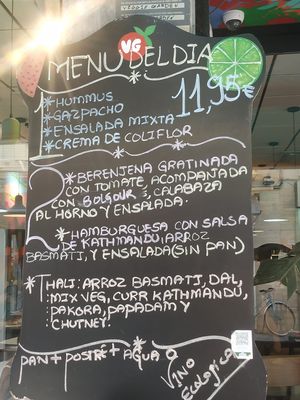 VEGGIE GARDEN
VG
MENU DEL DIA
11,95€
1 * HUMMUS
* GAZPACHO
* ENSALADA MIXTA
* CREMA DE COLIFLOR
2 * BERENJENA GRATINADA
CON TOMATE, ACOMPAÑADA
CON BOLGOUR Y, CALABAZA
AL HORNO Y ENSALADA.
* HAMBURGUESA CON SALSA
DE KATHMANDU, ARROZ
BASMATI, Y ENSALADA (SIN PAN)
* THALI: ARROZ BASMATI, DAL,
MIX VEG, CURR KATHMANDU,
PAKORA, PAPADAM Y
CHUTNEY.
PAN + POSTRE + AGUA O
VINO
Ecologica